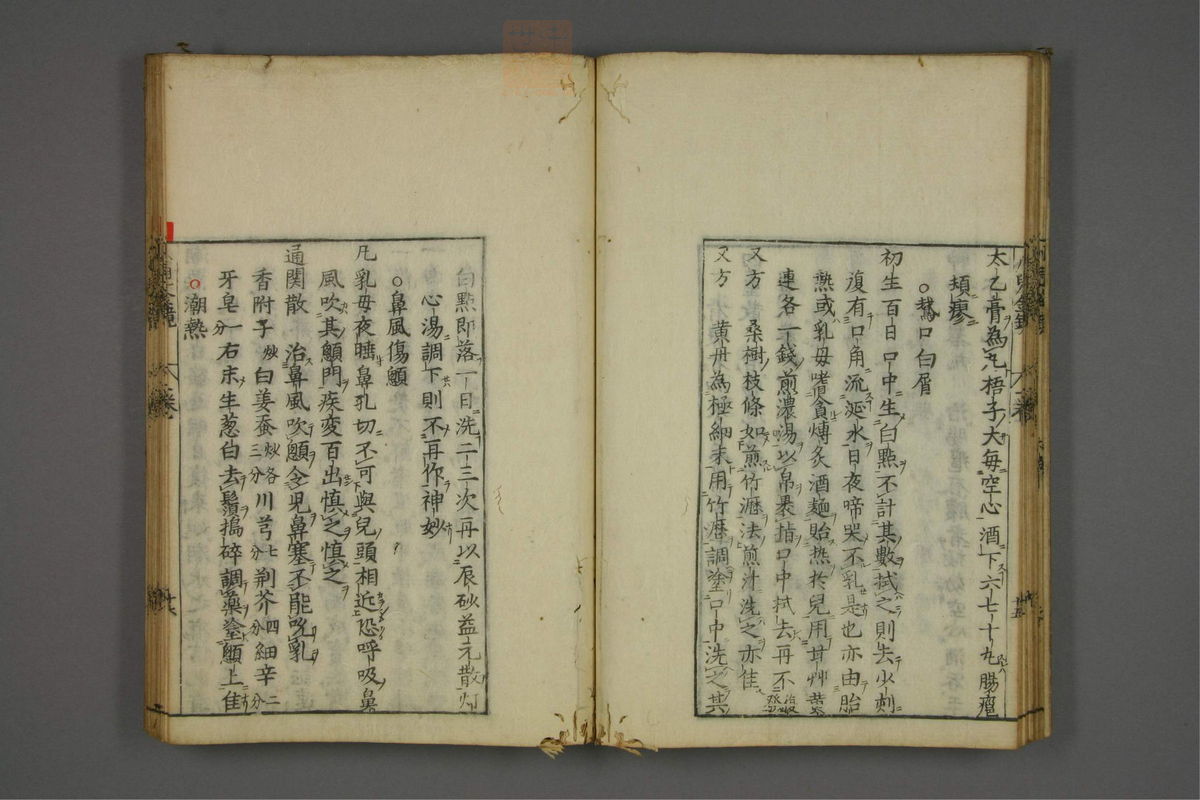 太乙膏為丸梧子大每空心酒下六七十丸腸癰
頬瘳
○鵝口白屑
初生百日口中生白點不計其數拭之則去少刺
復有口角流涎水日夜啼哭不乳是也亦由胎
熱或乳母嗜食煿炙酒麺貽热於兒用甘艸黄
連各一錢煎濃湯以帛裹指口中拭去再不
又方 桑樹枝條如煎竹瀝法煎汁洗之亦佳
又方 黄丹為極細末用竹瀝調塗口中洗之其
白點即落一日洗二三次再以辰砂益元散灯
心湯調下則不再作神妙
○鼻風傷顖
凡乳母夜睡鼻孔切不可與兒頭相近恐呼吸鼻
風吹其顖門疾変百出慎之慎之
通関散 治鼻風吹顖令児鼻塞不能吮乳
香附子炒白姜蚕炒各三分川芎七分荆芥四分細辛二分
牙皂一分右末生葱白去鬚搗碎調藥塗顖上佳
○潮熱